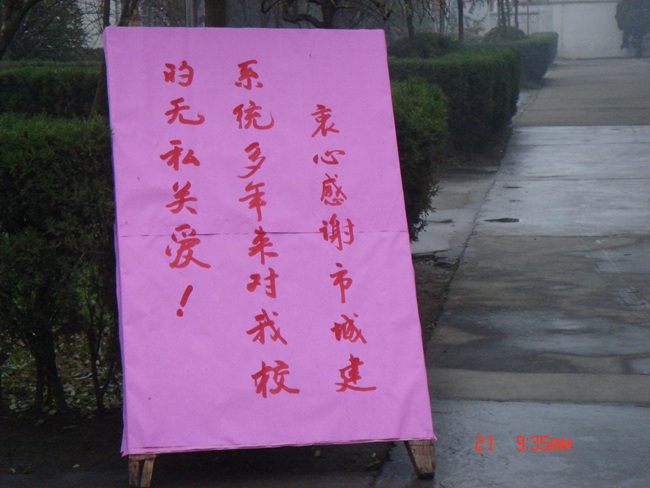 衷心感谢市城建
系统多年来对我校
的无私关爱！
21 9:35AM